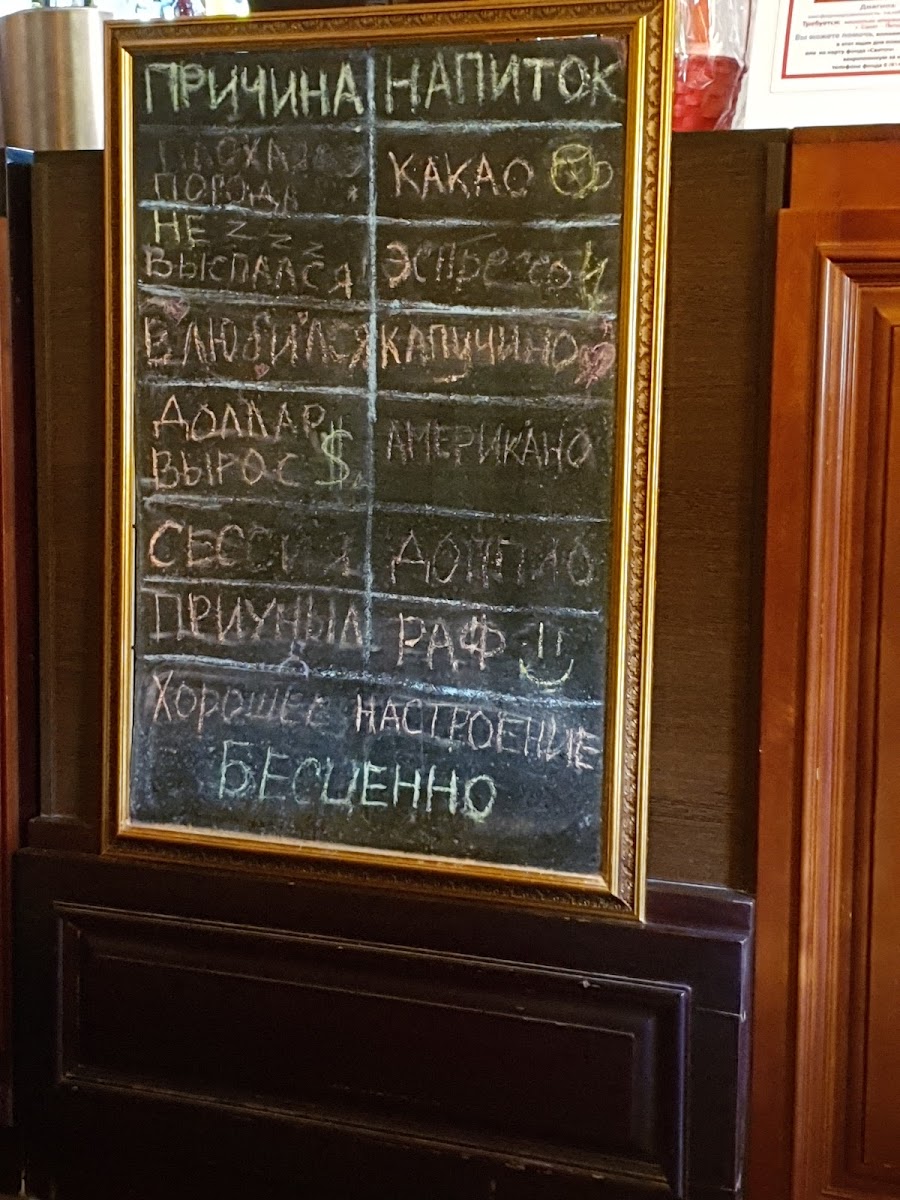 ПРИЧИНА НАПИТОК
ПЛОХАЯ
ПОГОДА КАКАО
НЕ z z z
ВЫСПАЛСЯ! ЭСПРЕССО
ВЛЮБИЛСЯ КАПУЧИНО
ДОЛЛАР
ВЫРОС $ АМЕРИКАНО
СЕССИЯ ДОППИО
ПРИУНЫЛ РАФ
ХОРОШЕЕ НАСТРОЕНИЕ
БЕСЦЕННО
Требуется:
Вы можете помочь,